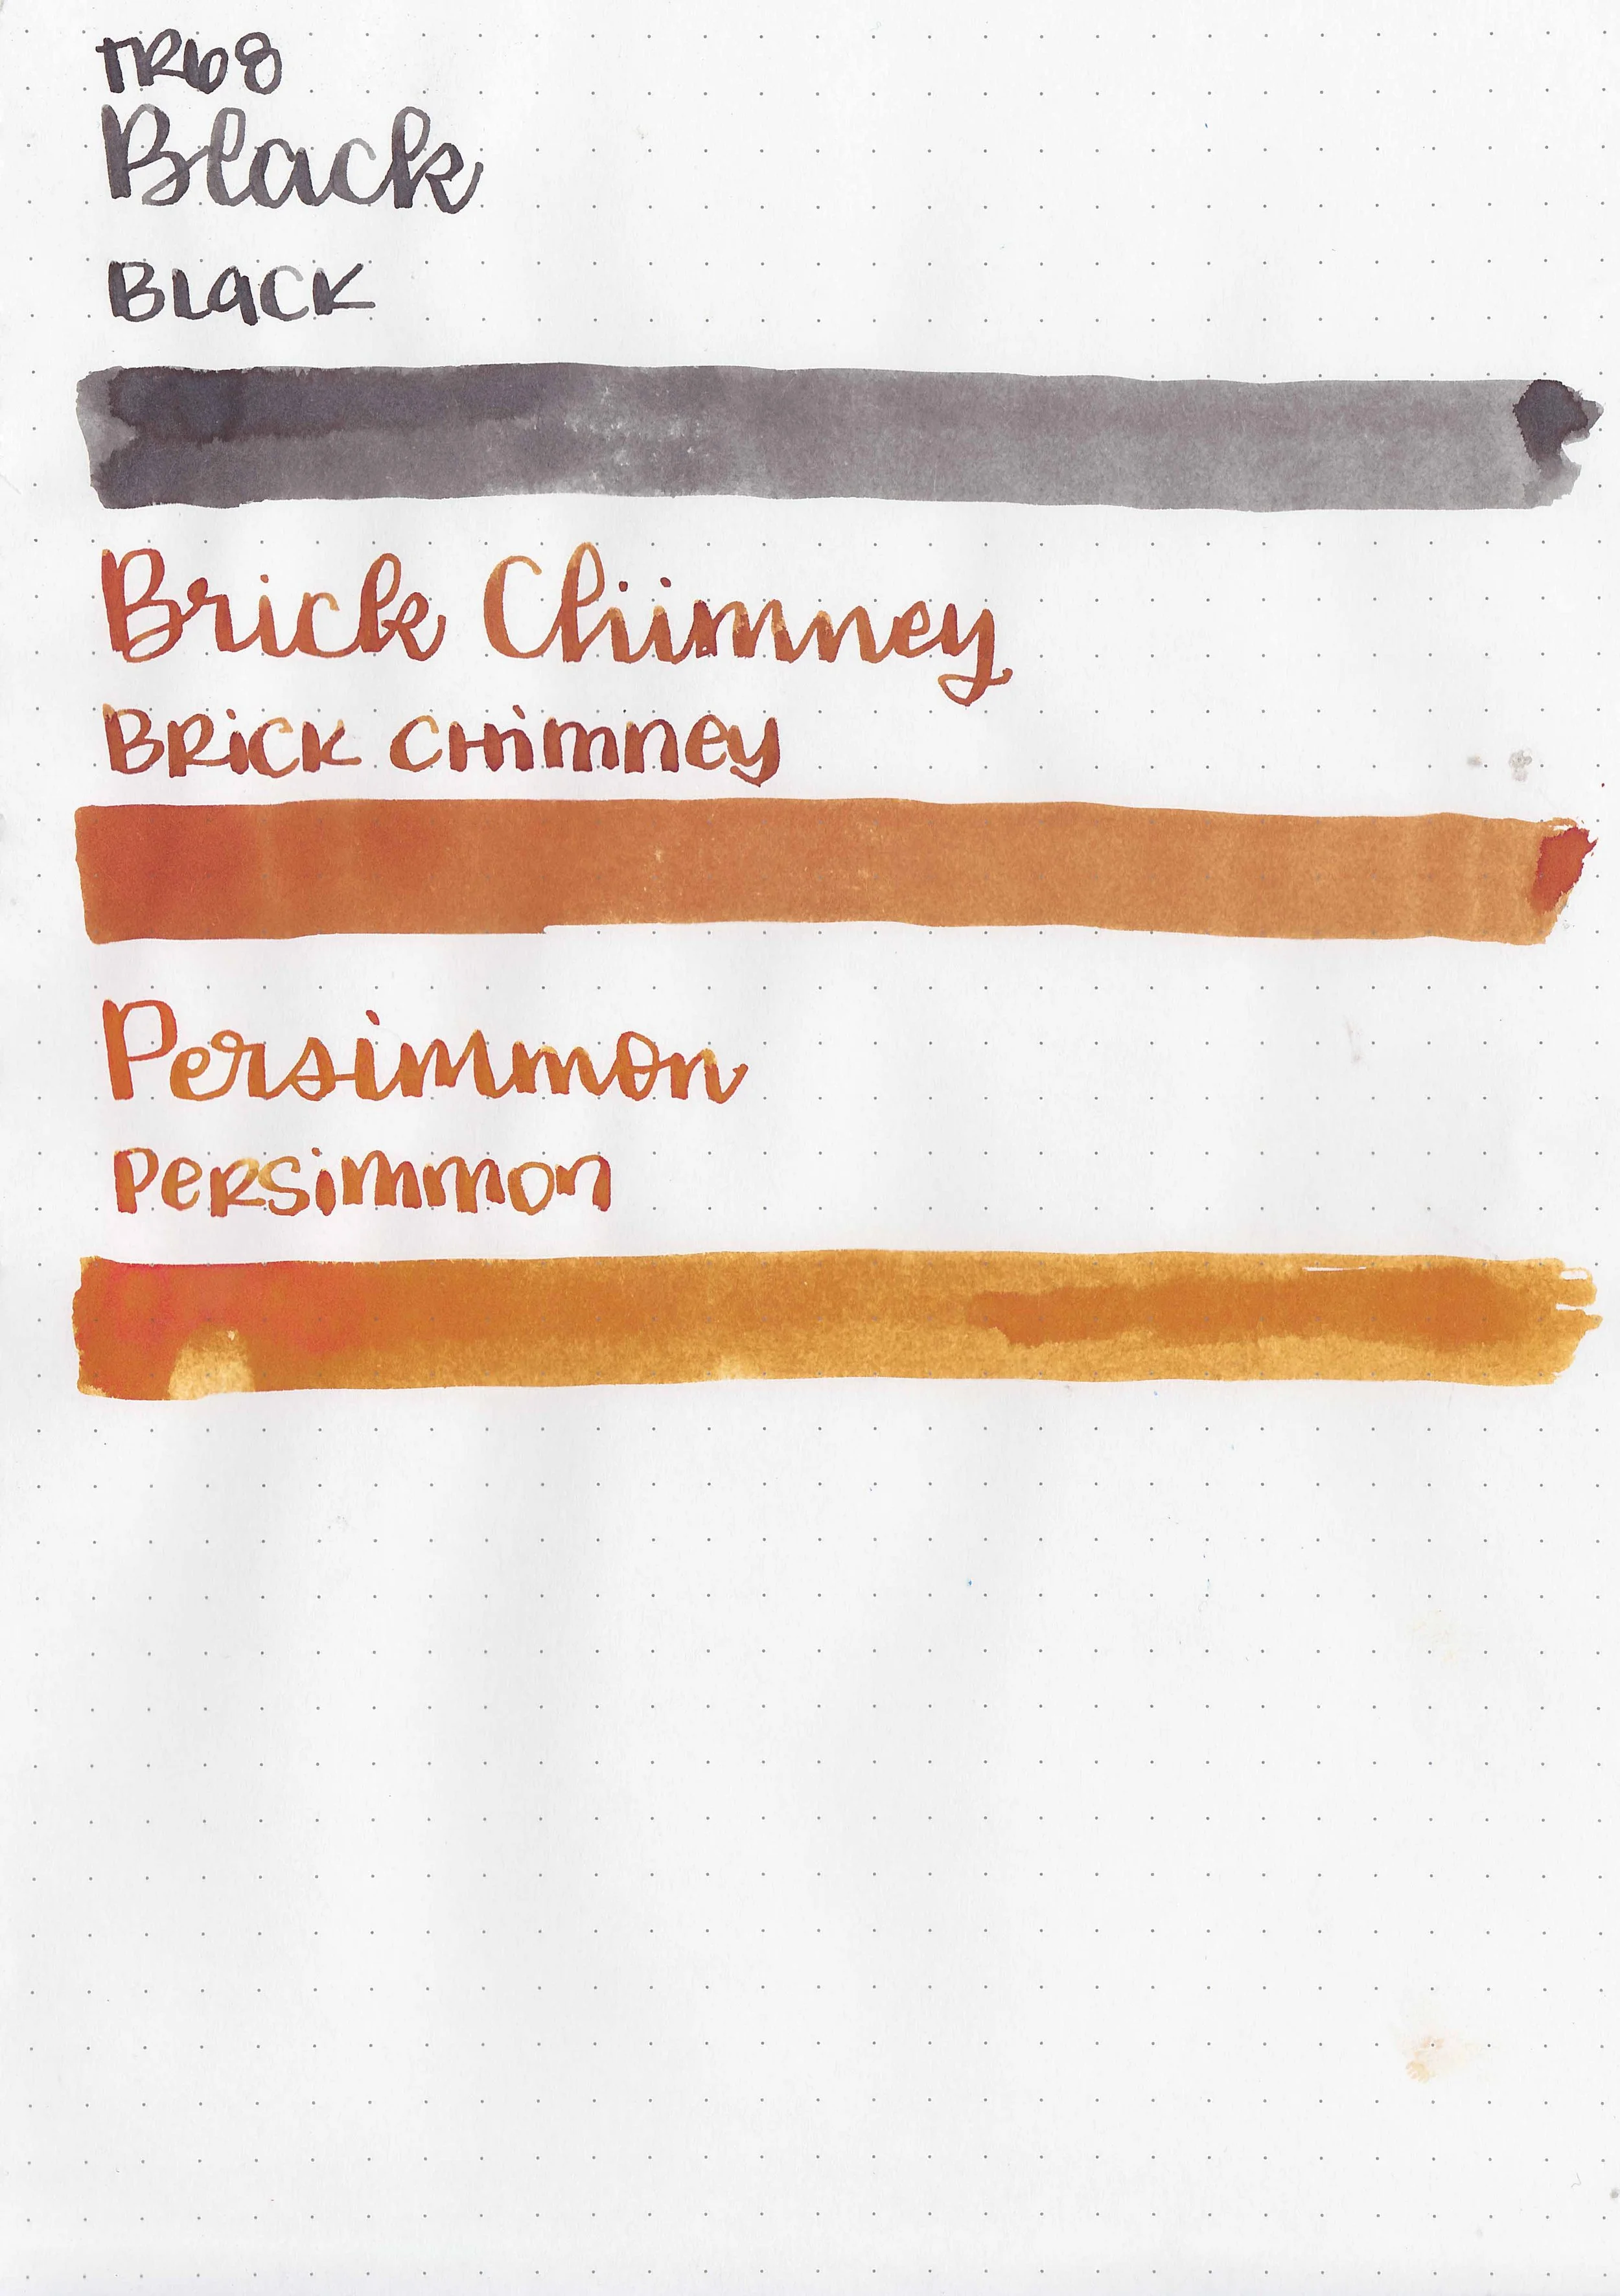 TR68
Black
BLaCK
Brick Chimney
BRiCK CHimney
Persimmon
PeRSimmon